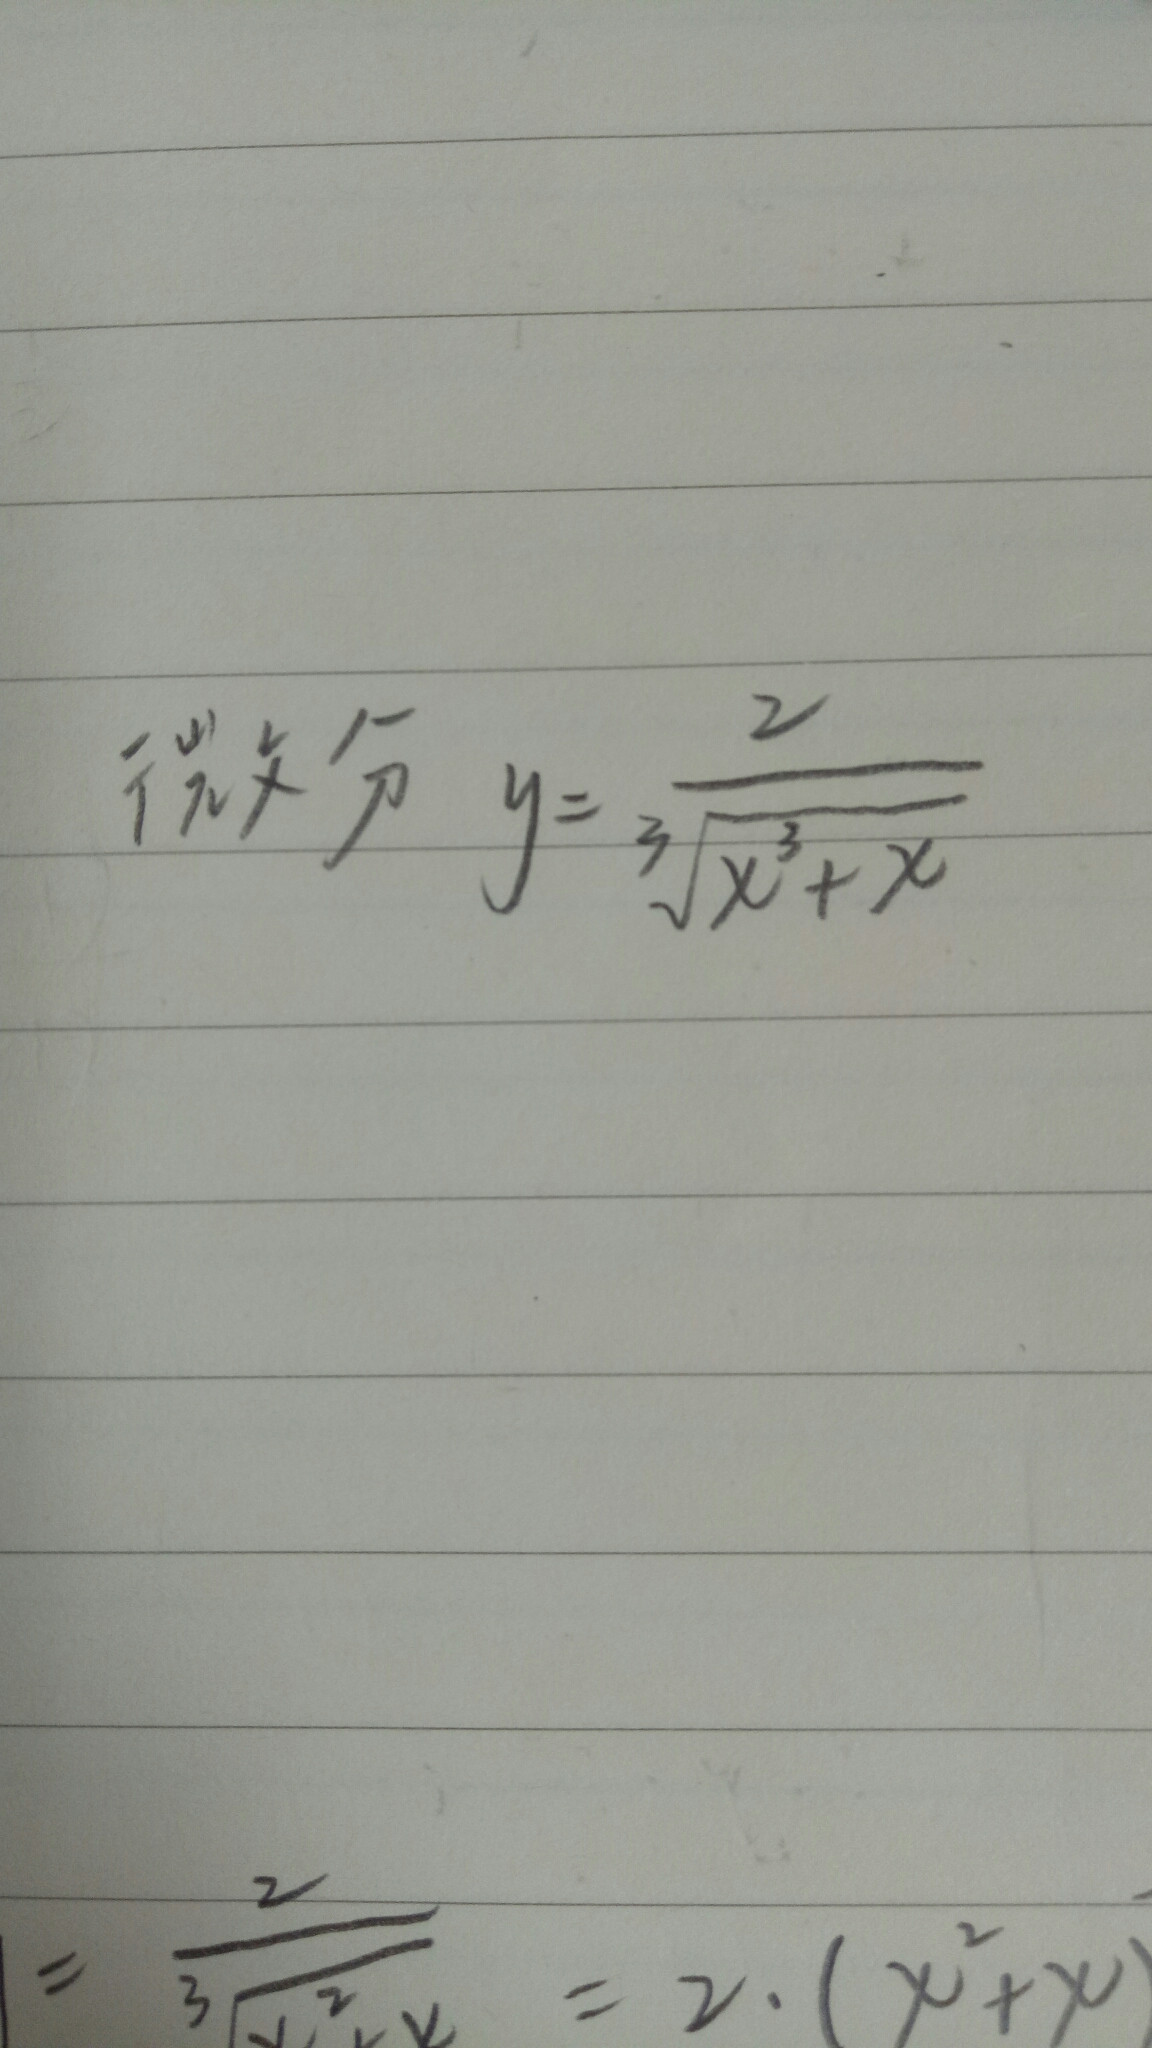 微分 y = 2/∛(x³+x)
= 2/∛(x²+x) = 2·(x²+x)